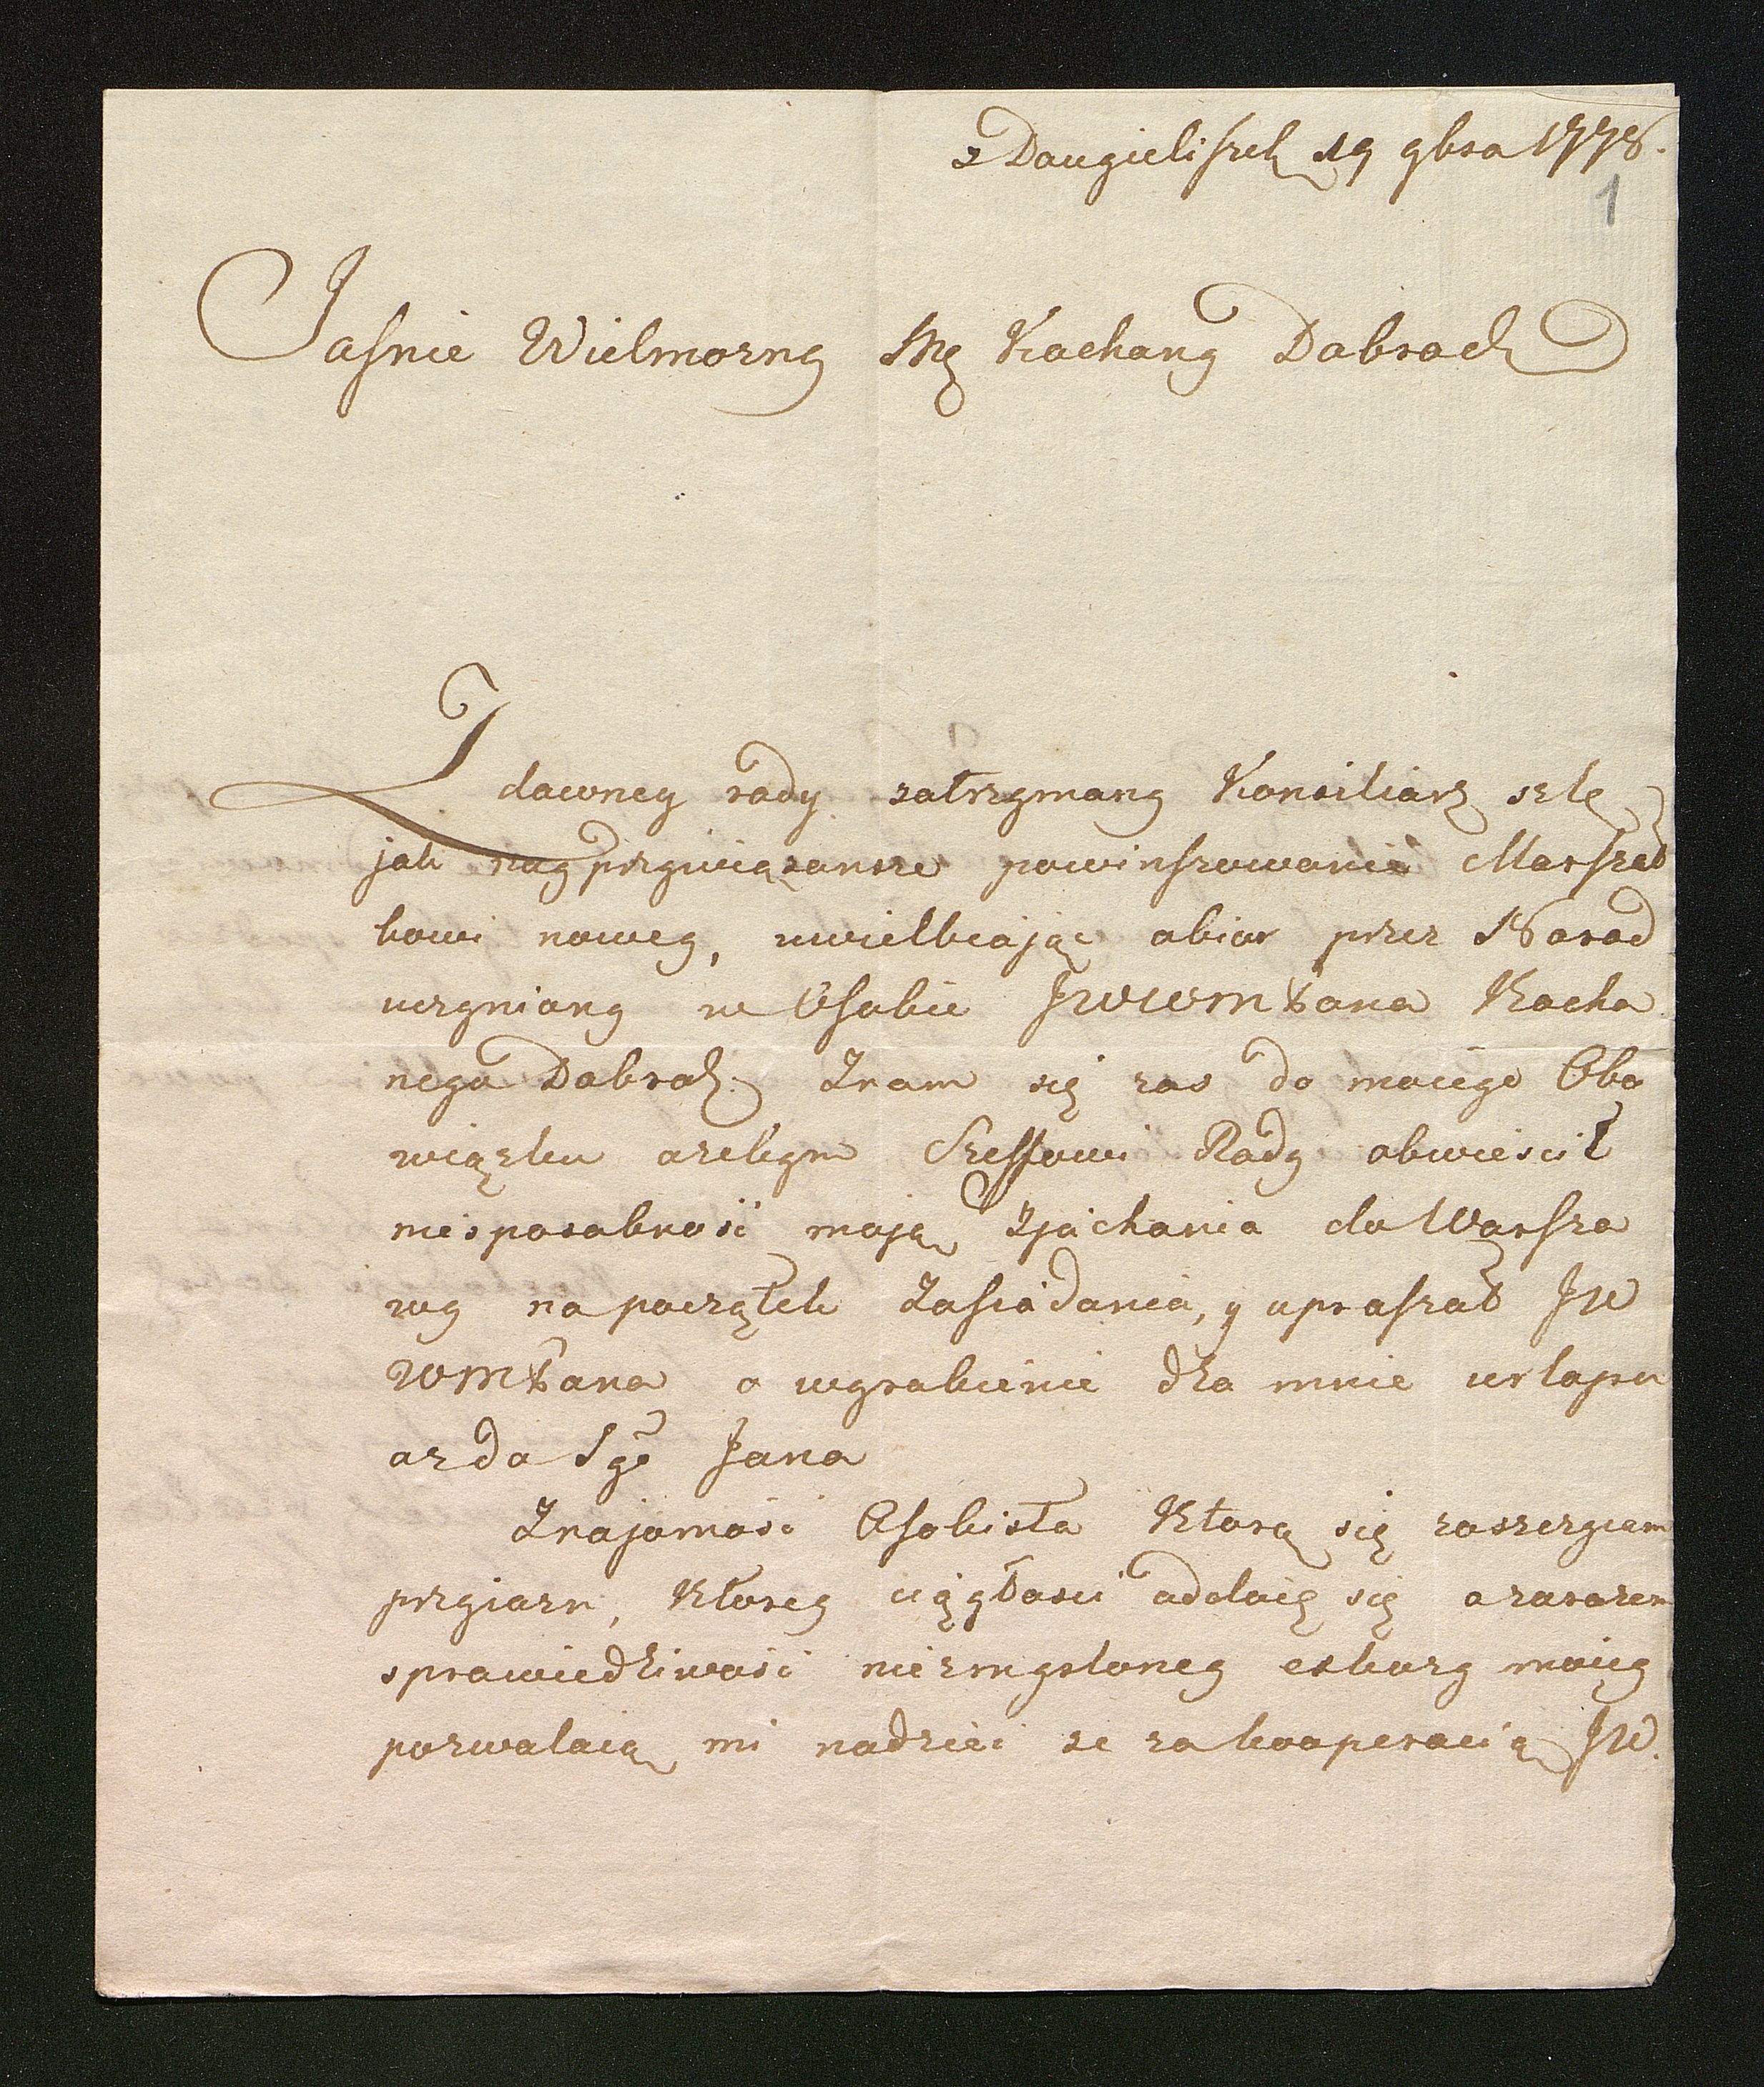 z Daugieliszek 19 9bra 1778.
1
Jaśnie Wielmożny Mci Kochany Dobrodz
Z dawney rady zatrzymany Konsiliarz szlę
jak nayprzywiązansze powinszowanie Marszał
kowi nowey, uwielbiając obior przez Narod
uczyniony w Osobie JWWMPana Kocha
nego Dobrodz. Znam się zas do moiego Obo
wiązku azebym Szeffowi Rady obwieścił
niesposobność mają zjachania do Warsza
wy na początek Zasiadania, y upraszał JW
WMPana o wyrobienie dla mnie urlopu
az do Sgo Jana
Znajomość Osobista Ktorą się zaszczycam
przyiazn, Ktorey ciągłości oddaię się a zarazem
sprawiedliwość niezmysloney exkuzy moiey
pozwalaią mi nadziei ze za kooperacią JW.